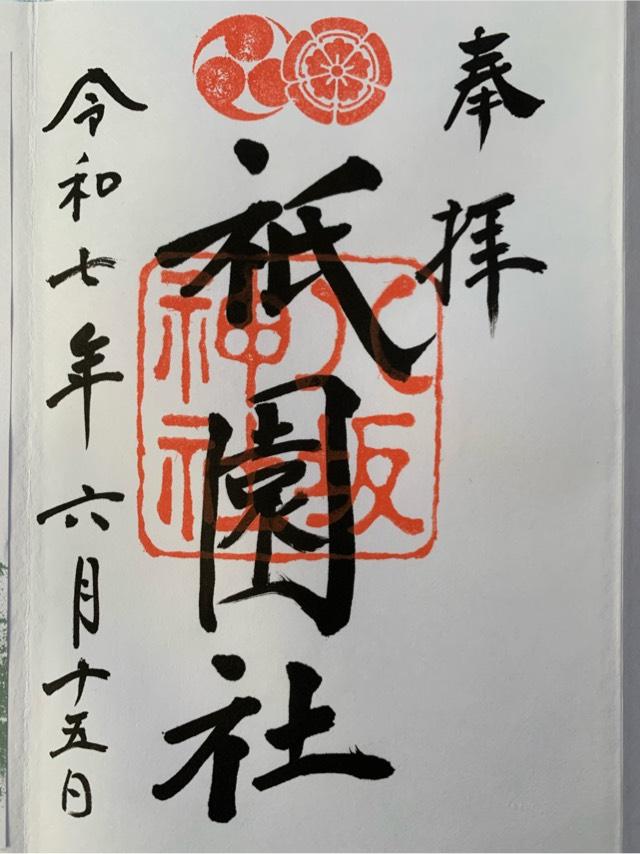 奉拝
祇園社
八坂神社
令和七年六月十五日